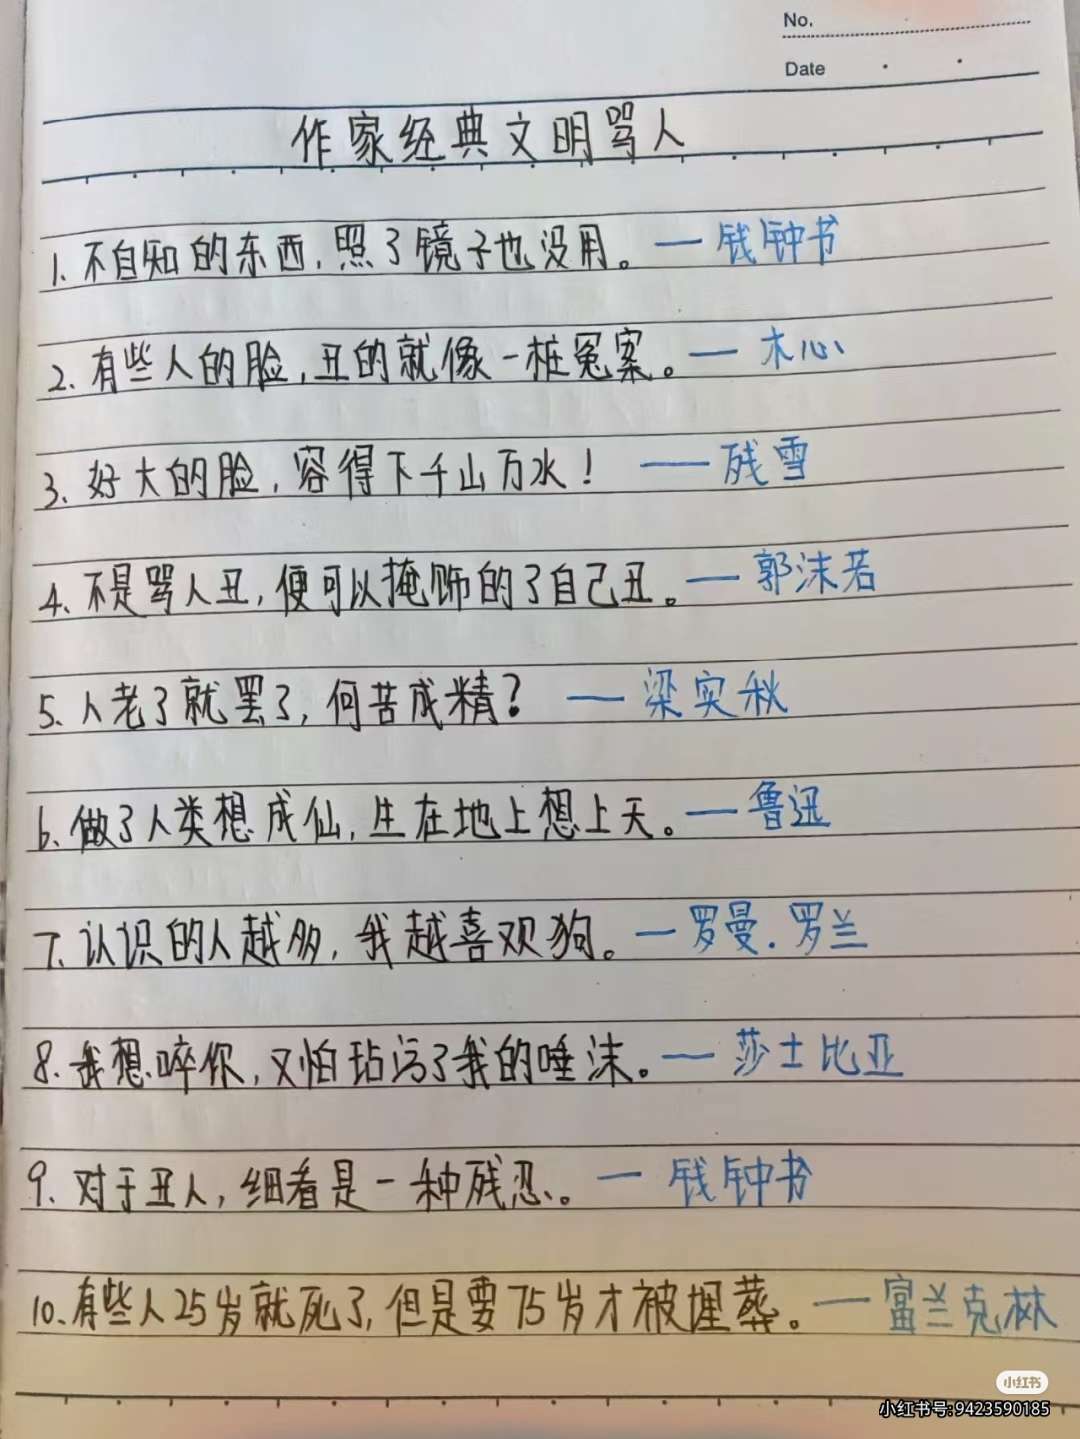 No.
Date
作家经典文明骂人
1. 不自知的东西，照了镜子也没用。 — 钱钟书
2. 有些人的脸，丑的就像一桩冤案。 — 木心
3. 好大的脸，容得下千山万水！ — 残雪
4. 不是骂人丑，便可以掩饰的了自己丑。 — 郭沫若
5. 人老了就罢了，何苦成精？ — 梁实秋
6. 做了人类想成仙，生在地上想上天。 — 鲁迅
7. 认识的人越多，我越喜欢狗。 — 罗曼.罗兰
8. 我想啐你，又怕玷污了我的唾沫。 — 莎士比亚
9. 对于丑人，细看是一种残忍。 — 钱钟书
10. 有些人25岁就死了，但是要75岁才被埋葬。 — 富兰克林
小红书
小红书号:9423590185